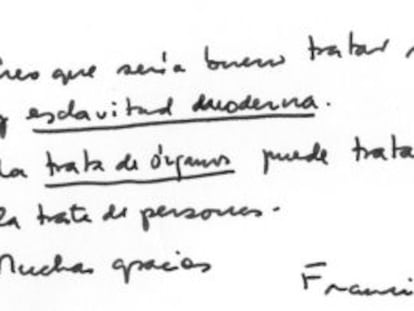 Creo que sería bueno tratar
y esclavitud moderna.
La trata de órganos puede trata
la trata de personas.
Muchas gracias
Franci